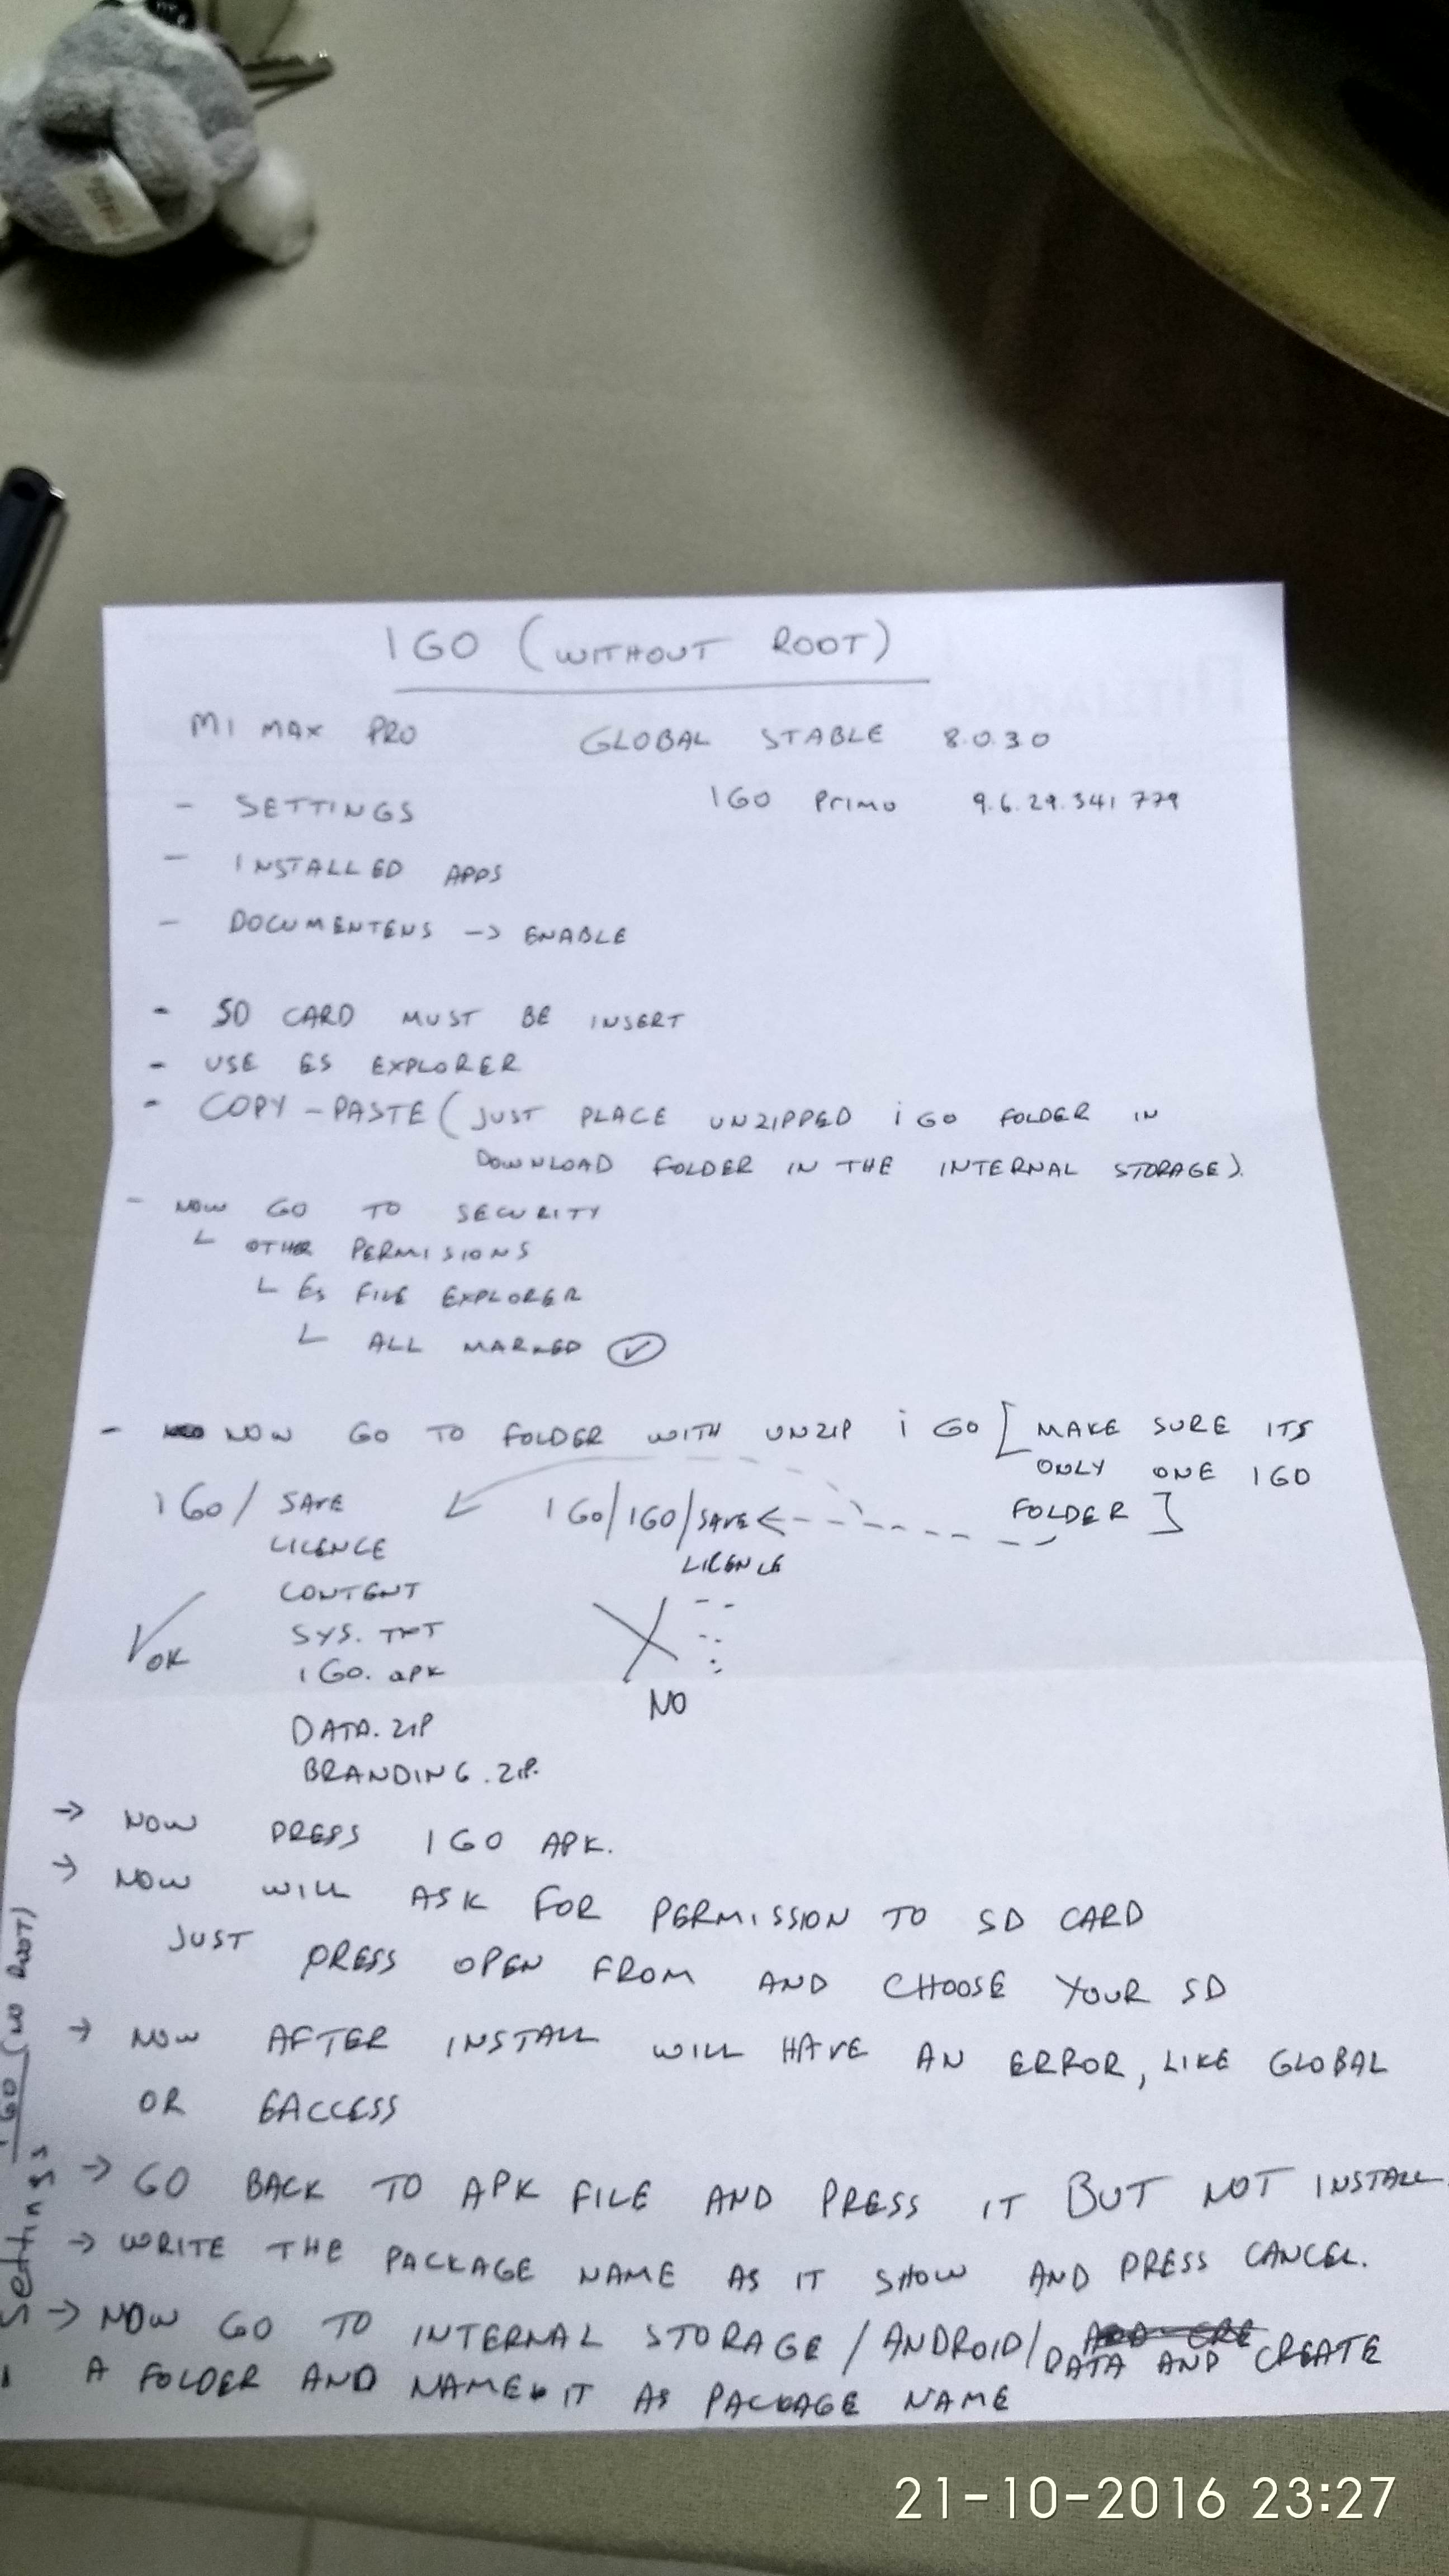 IGO (WITHOUT ROOT)
MI MAX PRO GLOBAL STABLE 8.0.3.0
- SETTINGS IGO Primo 9.6.29.341779
- INSTALLED APPS
- DOCUMENTENS -> ENABLE
- SD CARD MUST BE INSERT
- USE ES EXPLORER
- COPY-PASTE (JUST PLACE UNZIPPED iGO FOLDER IN
DOWNLOAD FOLDER IN THE INTERNAL STORAGE).
- NOW GO TO SECURITY
└ OTHER PERMISIONS
└ ES FILE EXPLORER
└ ALL MARKED ✓
- NOW GO TO FOLDER WITH UNZIP iGO [MAKE SURE ITS
ONLY ONE IGO
FOLDER]
iGO/ SAVE IGO/IGO/SAVE
LICENCE LICENCE
CONTENT
SYS.TXT
√ OK
IGO.apk
NO
DATA.ZIP
BRANDING.ZIP.
-> NOW PRESS IGO APK.
-> NOW WILL ASK FOR PERMISSION TO SD CARD
JUST PRESS OPEN FROM AND CHOOSE YOUR SD
-> NOW AFTER INSTALL WILL HAVE AN ERROR, LIKE GLOBAL
OR EACCESS
-> GO BACK TO APK FILE AND PRESS IT BUT NOT INSTALL
-> WRITE THE PACKAGE NAME AS IT SHOW AND PRESS CANCEL.
-> NOW GO TO INTERNAL STORAGE/ANDROID/DATA AND CREATE
A FOLDER AND NAME IT AS PACKAGE NAME
settings IGO (NO ROOT)
21-10-2016 23:27